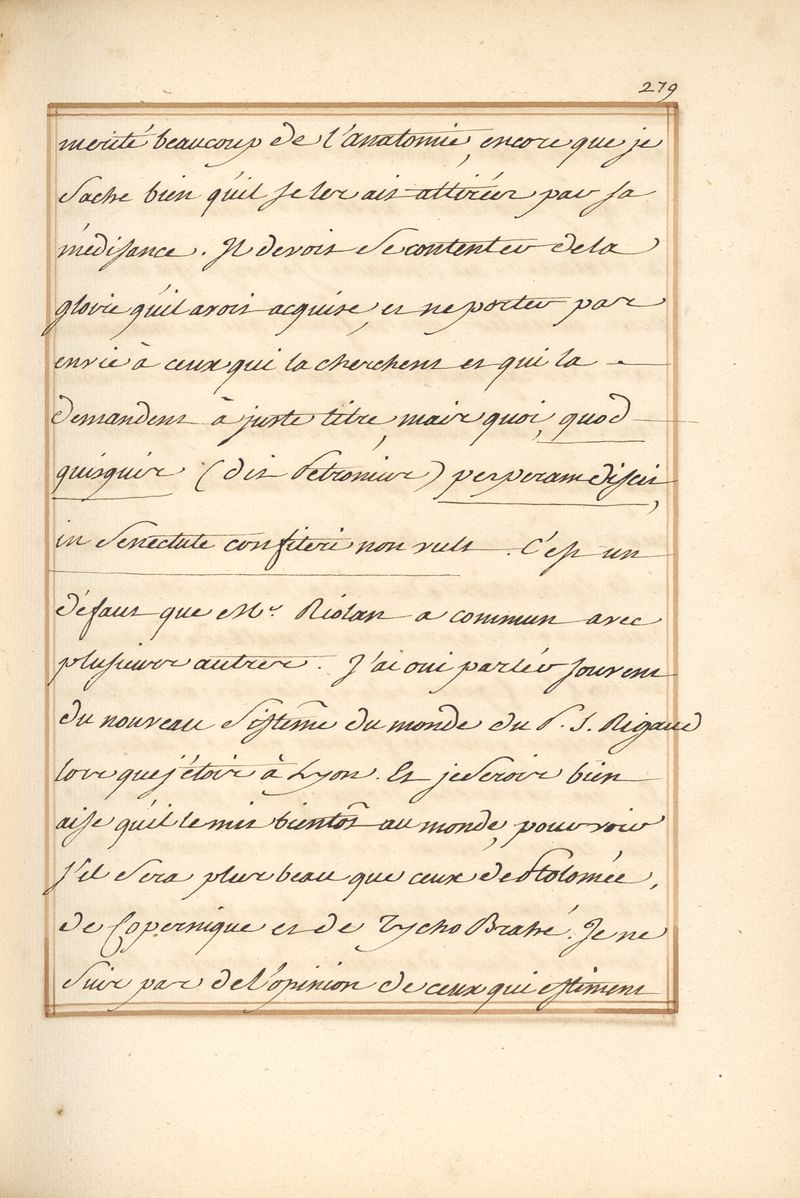 279
merité beaucoup de l'anatomie, encore que je
sache bien qu'il se les ait attirées par sa
médisance. Il devoit se contenter de la
gloire qu'il avoit acquise, et ne porter pas
envie à ceux qui la cherchent et qui la
demandent à juste titre, mais quoi, quod
quisquis (dit Petronius) perperam discit,
in senectute confiteri non vult. C'est un
défaut que Mr. Riolan a commun avec
plusieurs autres. J'ai oui parlér souvent
du nouveau Sistême du monde du P. S. Rigaud
lors que j'étois à Lyon. Et je serois bien
aise qu'il le mit bientôt au monde, pour voir
s'il sera plus beau que ceux de Ptolomée,
de Copernique et de Tycho Brahé. Je ne
suis pas de l'opinion de ceux qui estiment